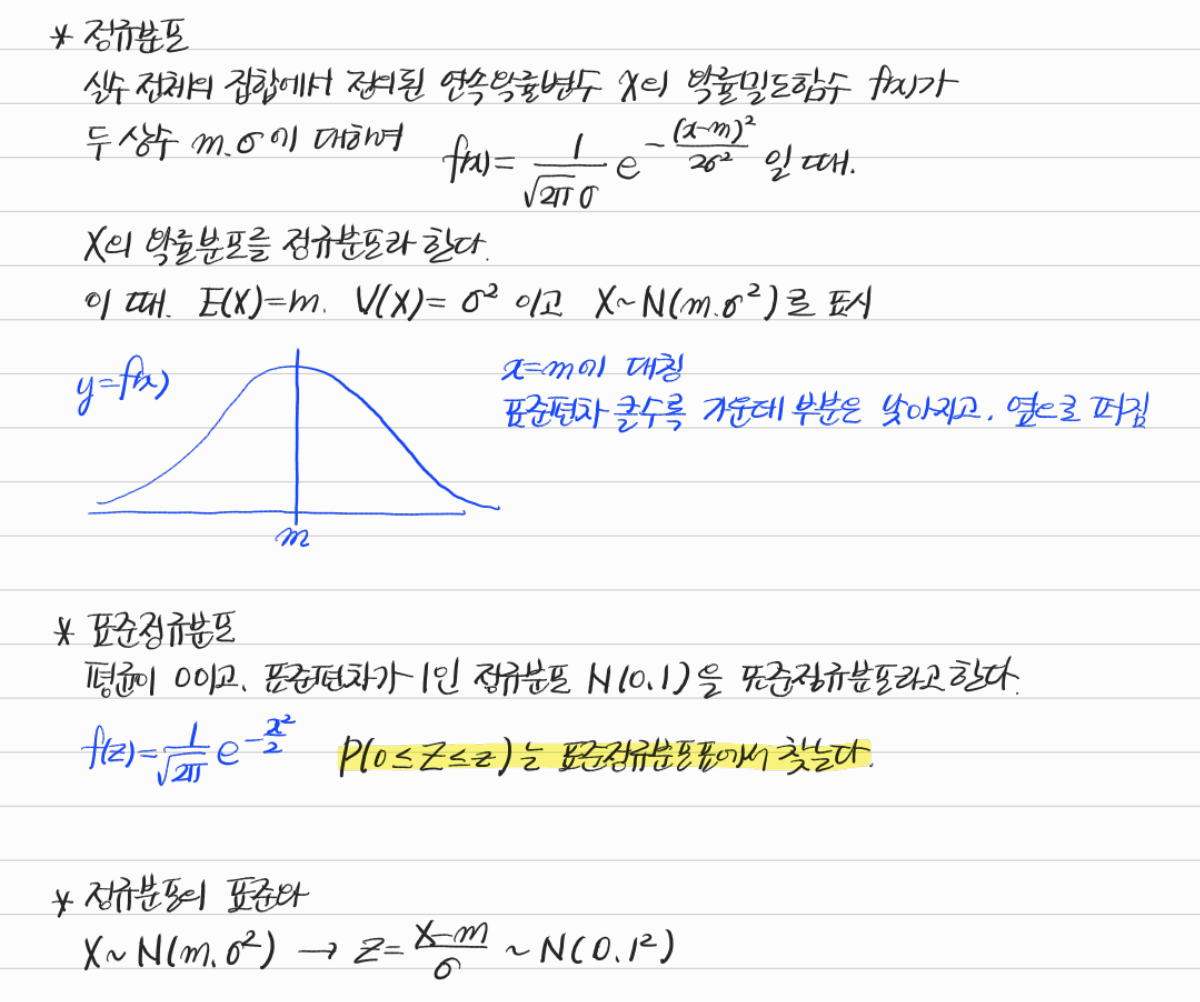 * 정규분포
실수 전체의 집합에서 정의된 연속확률변수 X의 확률밀도함수 f(x)가
두 상수 m, σ에 대하여 f(x)= 1/(√2π σ) e^(-(x-m)²/2σ²) 일 때,
X의 확률분포를 정규분포라 한다.
이 때, E(X)=m, V(X)=σ² 이고 X~N(m,σ²)로 표시
y=f(x)
x=m에 대칭
표준편차 클수록 가운데 부분은 낮아지고, 옆으로 퍼짐
m
* 표준정규분포
평균이 0이고, 표준편차가 1인 정규분포 N(0,1)을 표준정규분포라고 한다.
f(z)= 1/√2π e^(-z²/2) P(0≤Z≤z)는 표준정규분포표에서 찾는다.
* 정규분포의 표준화
X~N(m,σ²) → Z= (X-m)/σ ~ N(0,1²)